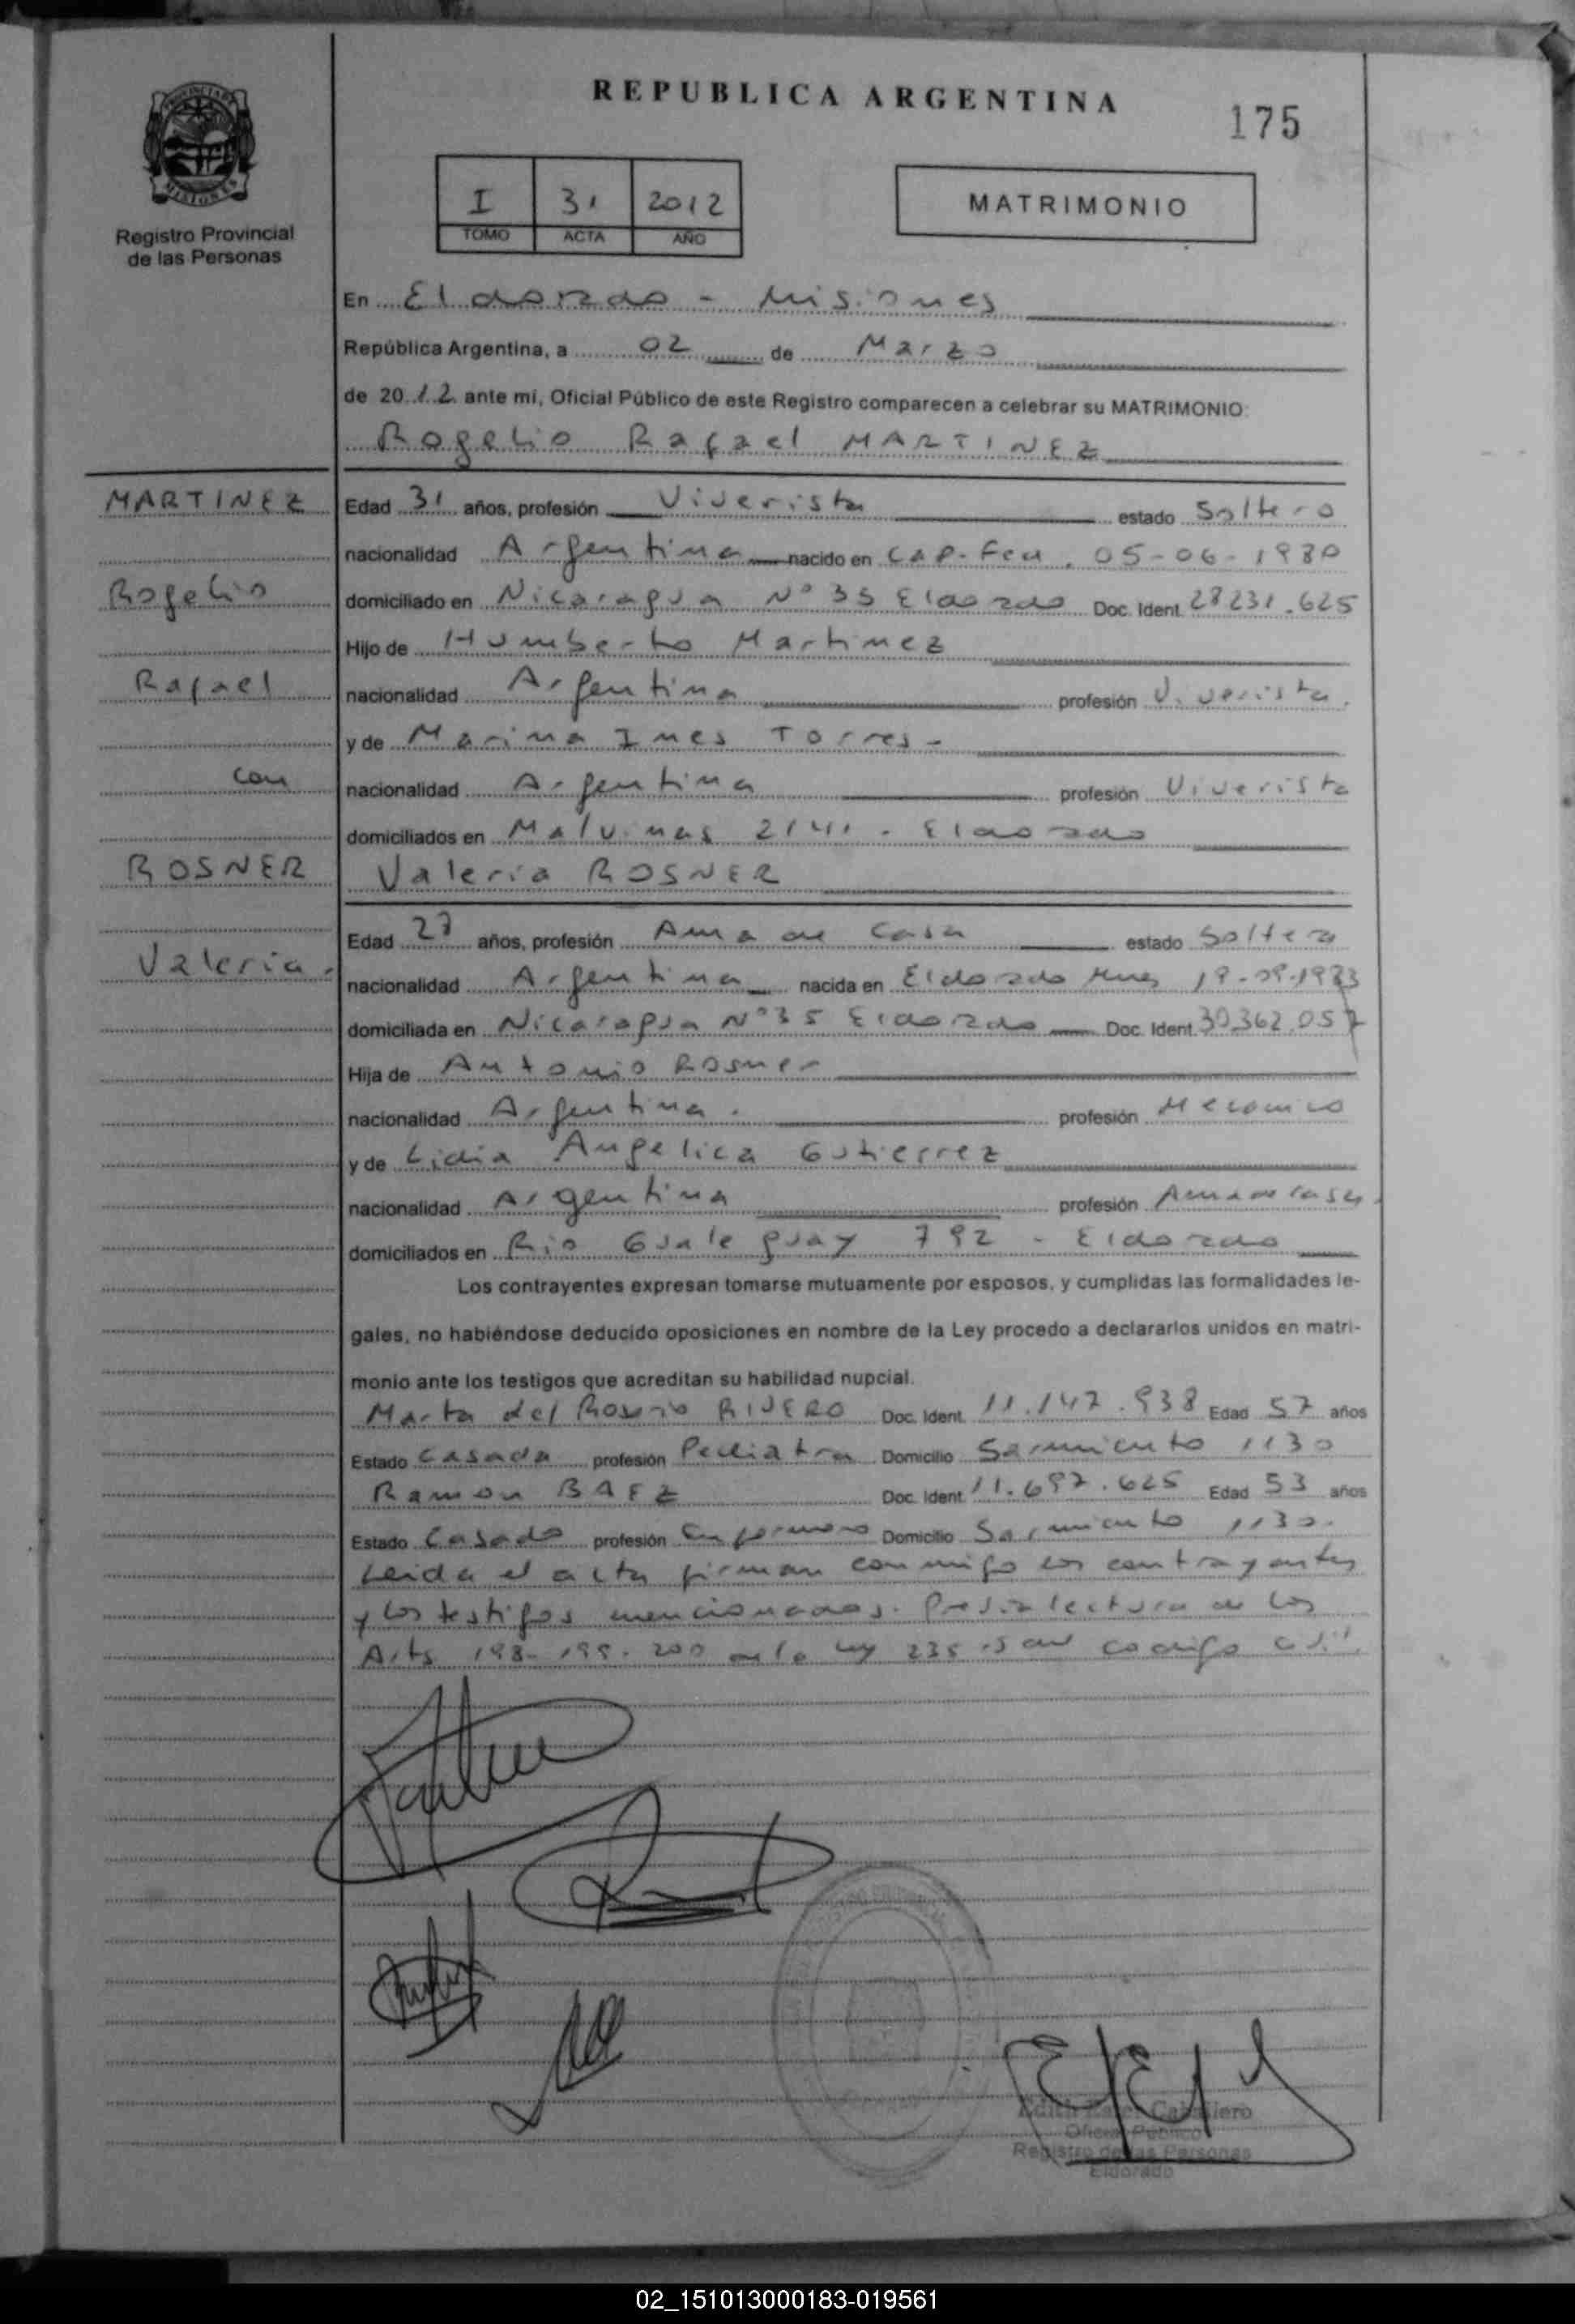 REPUBLICA ARGENTINA
175
PROVINCIA DE
MISIONES
Registro Provincial
de las Personas
I 31 2012
TOMO ACTA AÑO
MATRIMONIO
En Eldorado - Misiones
República Argentina, a 02 de Marzo
de 2012 ante mi, Oficial Público de este Registro comparecen a celebrar su MATRIMONIO:
Rogelio Rafael MARTINEZ
MARTINEZ
Rogelio
Rafael
con
ROSNER
Valeria.
Edad 31 años, profesión Viverista estado Soltero
nacionalidad Argentina nacido en Cap. Fed. 05-06-1980
domiciliado en Nicaragua Nº 35 Eldorado Doc. Ident. 28231.625
Hijo de Humberto Martinez
nacionalidad Argentina profesión Viverista.
y de Marina Ines Torres -
nacionalidad Argentina profesión Viverista
domiciliados en Malvinas 2141 - Eldorado
Valeria ROSNER
Edad 27 años, profesión Ama de Casa estado Soltera
nacionalidad Argentina nacida en Eldorado Mnes
domiciliada en Nicaragua Nº 35 Eldorado Doc. Ident. 30.362.057
Hija de Antonio Rosner
nacionalidad Argentina. profesión Mecanico
y de Lidia Angelica Gutierrez
nacionalidad Argentina profesión Ama de casa.
domiciliados en Rio Gualeguay 792 - Eldorado
Los contrayentes expresan tomarse mutuamente por esposos, y cumplidas las formalidades le-
gales, no habiéndose deducido oposiciones en nombre de la Ley procedo a declararlos unidos en matri-
monio ante los testigos que acreditan su habilidad nupcial.
Marta del Rosario RIVERO Doc. Ident. 11.147.938 Edad 57 años
Estado Casada profesión Pediatra Domicilio Sarmiento 1130
Ramon BAEZ Doc. Ident. 11.697.625 Edad 53 años
Estado Casado profesión Enfermero Domicilio Sarmiento 1130.
Leida el acta firman conmigo los contrayentes
y los testigos mencionados. Previa lectura de los
Arts 198-199-200 de la Ley 23515 del codigo civil.
Edith Caballero
Oficial Público
Registro de las Personas
Eldorado
02_151013000183-019561